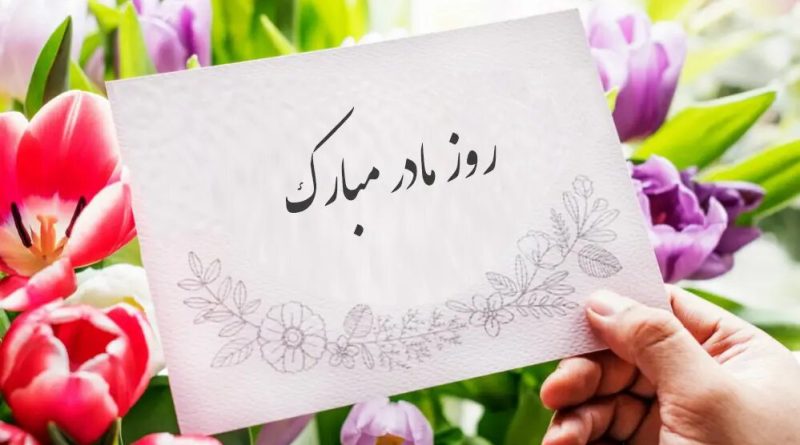 روز مادر مبارک